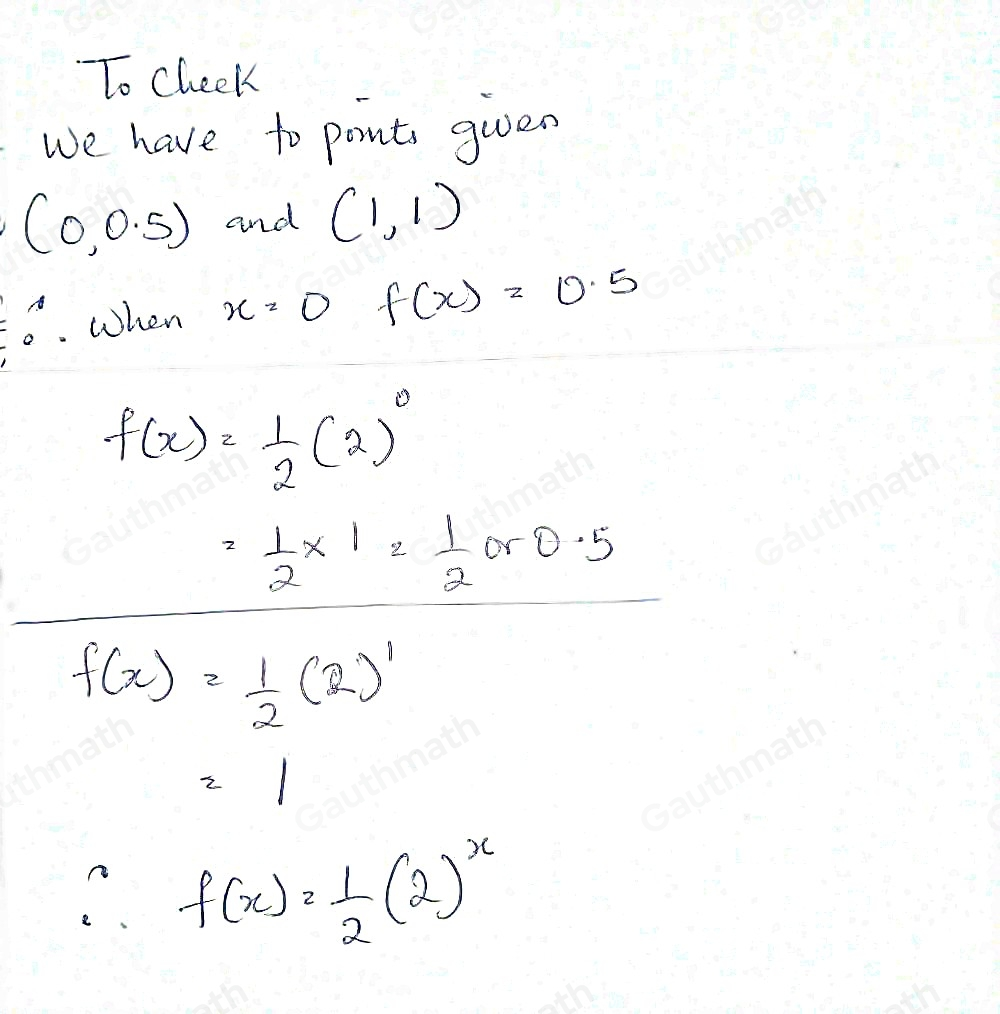 To Check
We have to points given
(0,0.5) and (1,1)
∴ when x = 0 f(x) = 0.5
f(x) = 1/2 (2)^0
= 1/2 × 1 = 1/2 or 0.5
f(x) = 1/2 (2)^1
= 1
∴ f(x) = 1/2 (2)^x
Gauthmath